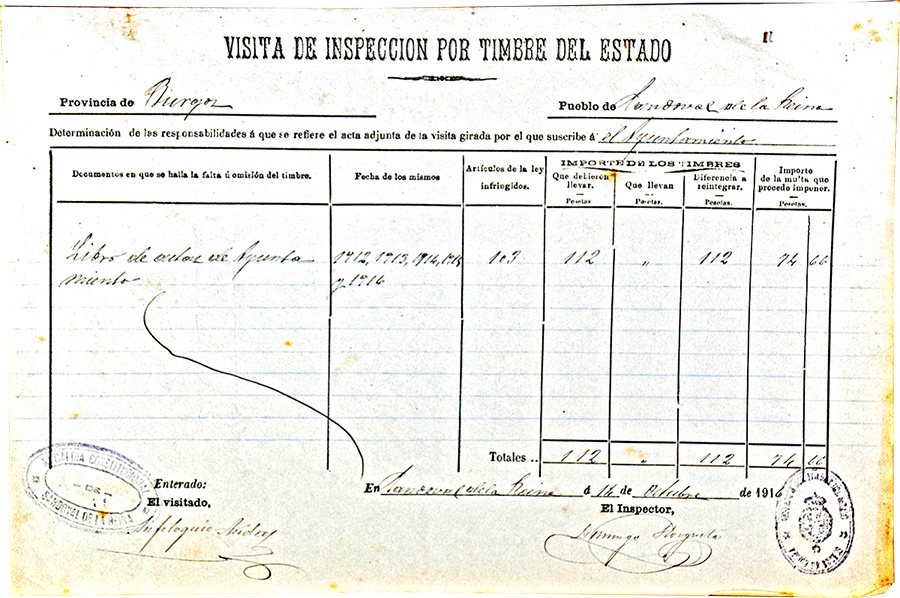 VISITA DE INSPECCION POR TIMBRE DEL ESTADO
Provincia de Burgos
Pueblo de Sandoval de la Reina
Determinación de las responsabilidades á que se refiere el acta adjunta de la visita girada por el que suscribe á el Ayuntamiento
Documentos en que se halla la falta ú omisión del timbre.
Fecha de los mismos
Artículos de la ley
infringidos.
IMPORTE DE LOS TIMBRES
Que debieron
llevar.
Pesetas
Que llevan
Pesetas.
Diferencia a
reintegrar.
Pesetas.
Importe
de la multa que
procede imponer.
Pesetas.
Libro de actas de Ayunta
miento
1912, 1913, 1914, 1915
y 1916
103
112
"
112
74 66
Totales...
112
"
112
74 66
Enterado:
El visitado,
En Sandoval de la Reina á 14 de Octubre de 1916
El Inspector,
Domingo
ALCALDIA CONSTITUCIONAL
DE
SANDOVAL DE LA REINA